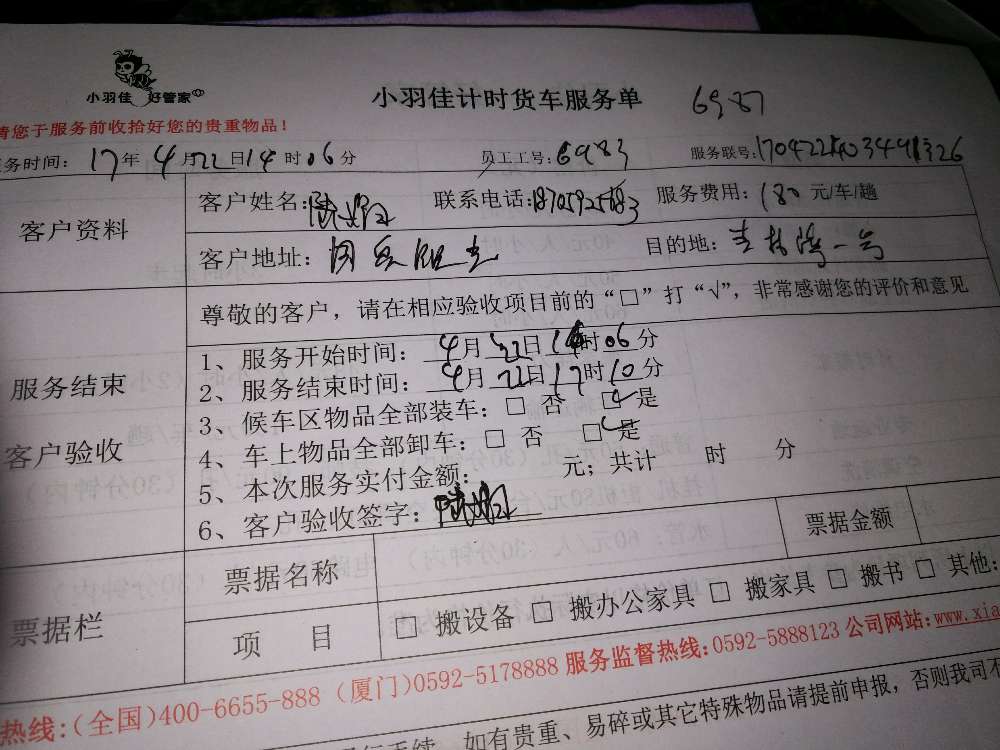 小羽佳 好管家
小羽佳计时货车服务单 6987
请您于服务前收拾好您的贵重物品！
务时间： 17年 4月22日14时06分 员工工号：6983 服务联号：
客户资料 客户姓名： 联系电话：18705925683 服务费用：180 元/车/趟
客户地址： 目的地：
尊敬的客户，请在相应验收项目前的“□”打“√”，非常感谢您的评价和意见
服务结束
客户验收
1、服务开始时间： 4月22日14时06分
2、服务结束时间： 4月22日17时10分
3、候车区物品全部装车：□ 否 ☑是
4、车上物品全部卸车：□ 否 ☑是
5、本次服务实付金额： 元；共计 时 分
6、客户验收签字：
票据栏 票据名称 票据金额
项 目 □ 搬设备 □ 搬办公家具 □ 搬家具 □ 搬书 □ 其他：
热线：（全国）400-6655-888 （厦门）0592-5178888 服务监督热线：0592-5888123 公司网站：www.xia
如有贵重、易碎或其它特殊物品请提前申报，否则我司不